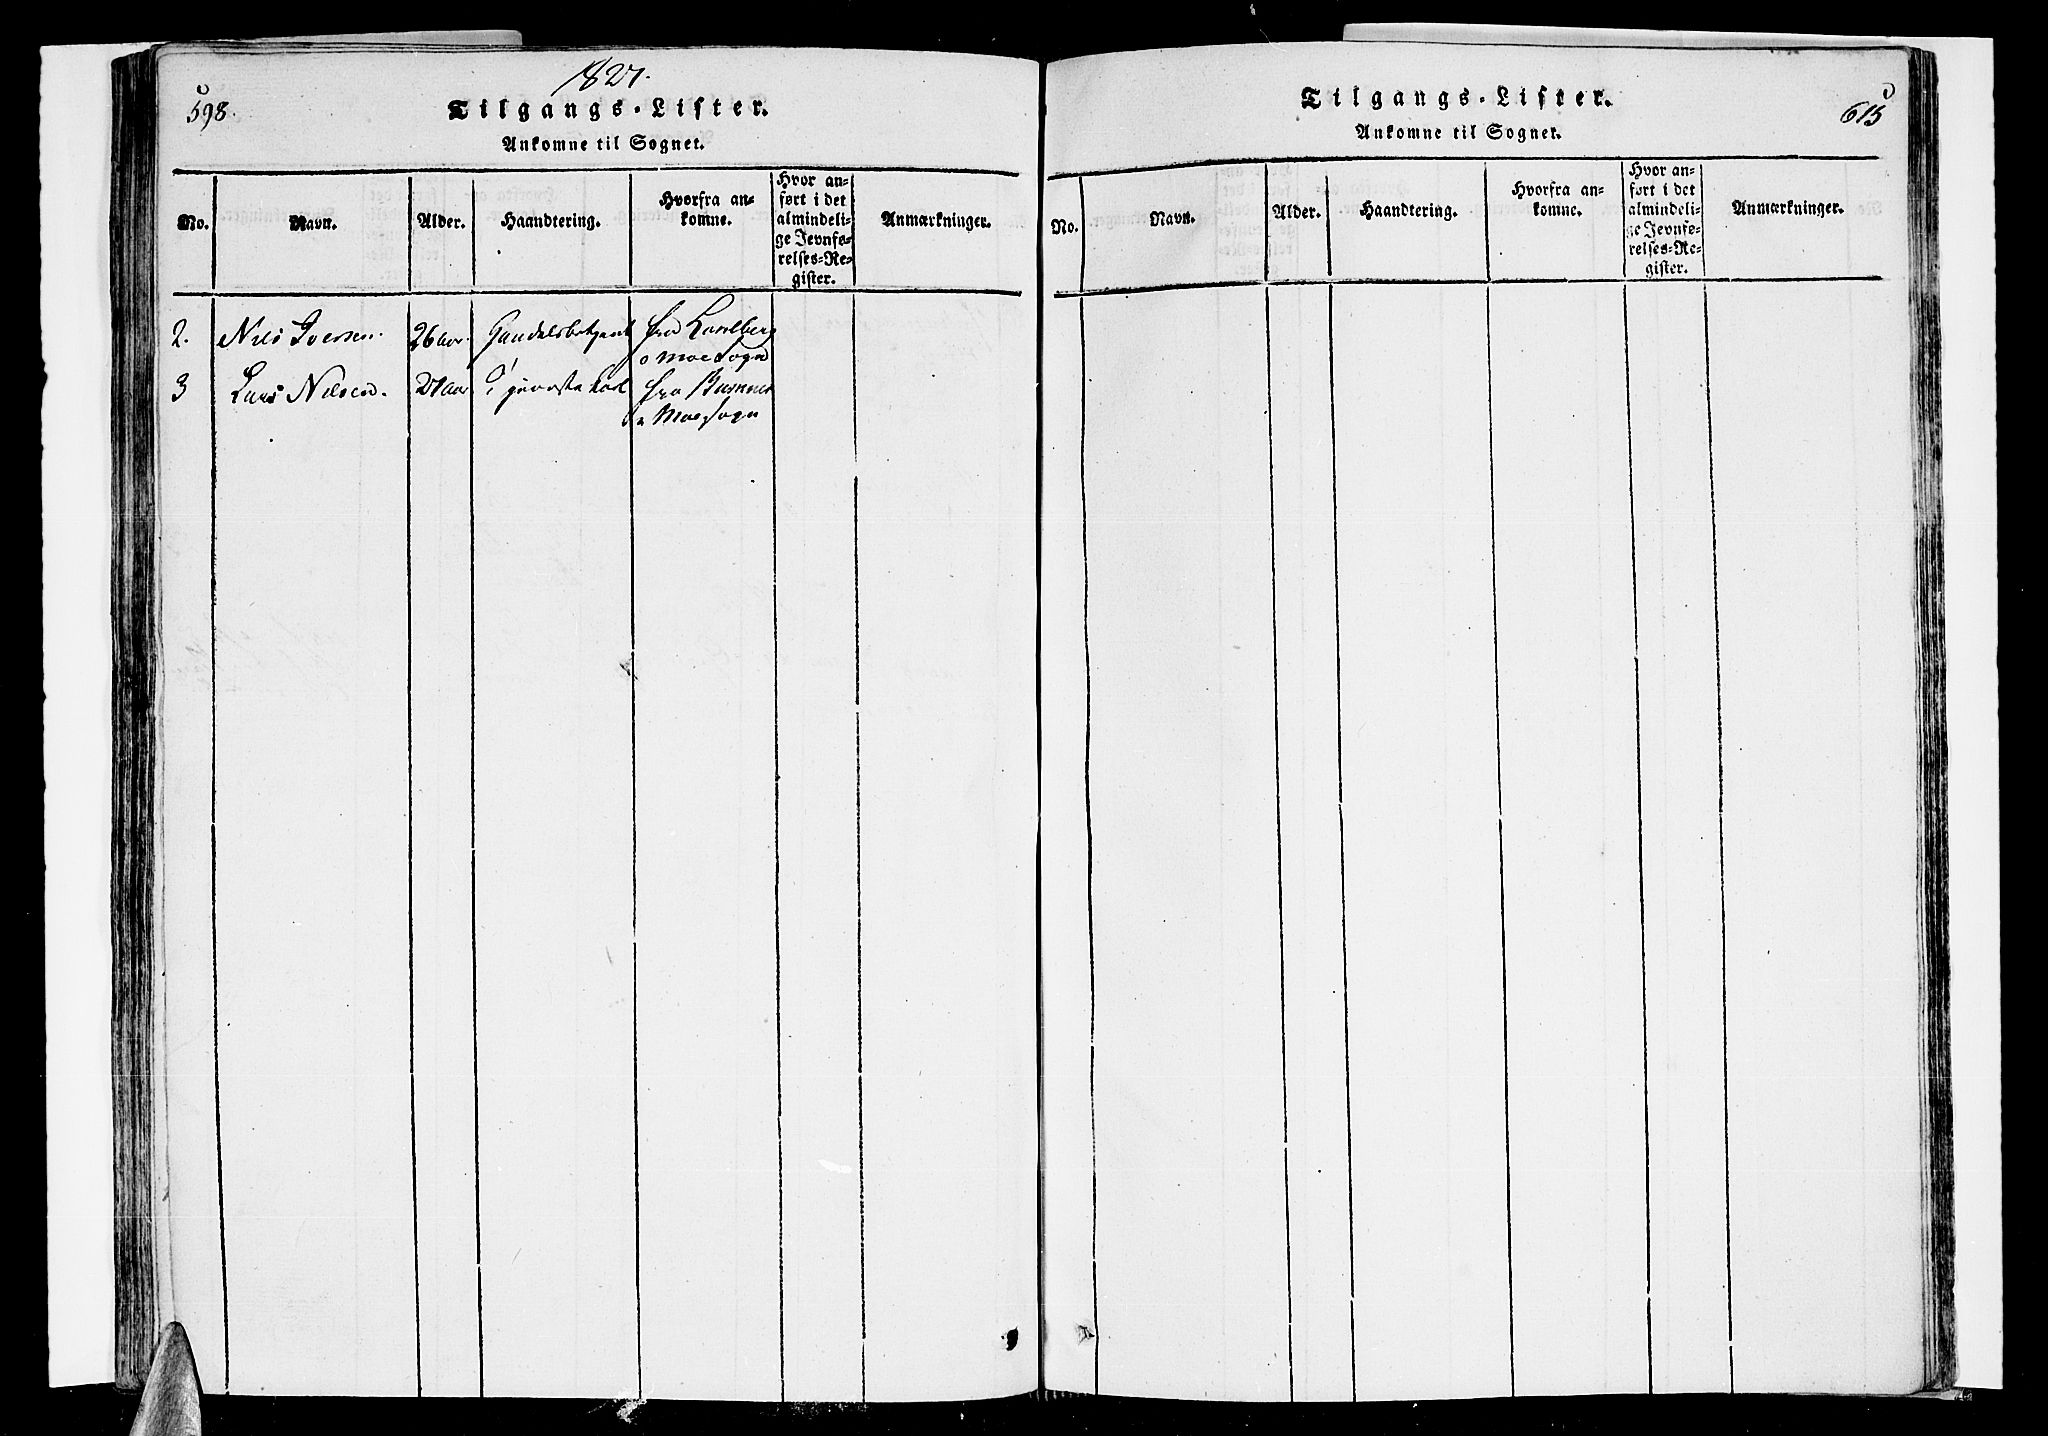 598.
1827.
Tilgangs-Lister.
Ankomne til Sognet.
No.
Navn.
Alder.
Haandtering.
Hvorfra an-
komne.
Hvor an-
ført i det
almindeli-
ge Jevnfø-
relses-Re-
gister.
Anmærkninger.
2.
Nils Iversen.
26 aar.
Handelsbetjent
fra
o Moe Sogn
3
Lars Nilsen.
27 aar
fra
Moe Sogn
Tilgangs-Lister.
615
Ankomne til Sognet.
No.
Navn.
Alder.
Haandtering.
Hvorfra an-
komne.
Hvor an-
ført i det
almindeli-
ge Jevnfø-
relses-Re-
gister.
Anmærkninger.